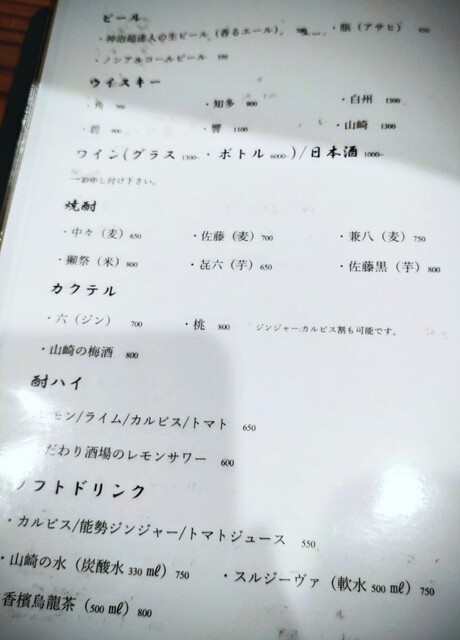 ビール
・神泡超達人の生ビール（香るエール） ・瓶（アサヒ） 850
・ノンアルコールビール 550
ウイスキー
・角 700 ・知多 900 ・白州 1300
・碧 900 ・響 1100 ・山崎 1300
ワイン(グラス 1300~ ・ボトル 6000~)/日本酒 1000~
お申し付け下さい。
焼酎
・中々（麦）650 ・佐藤（麦）700 ・兼八（麦）750
・獺祭（米）800 ・㐂六（芋）650 ・佐藤黒（芋）800
カクテル
・六（ジン） 700 ・桃 800 ジンジャー/カルピス割も可能です。
・山崎の梅酒 800
酎ハイ
モン/ライム/カルピス/トマト 650
だわり酒場のレモンサワー 600
フトドリンク
・カルピス/能勢ジンジャー/トマトジュース 550
・山崎の水（炭酸水 330 ㎖）750 ・スルジーヴァ（軟水 500 ㎖）750
香檳烏龍茶（500 ㎖）800